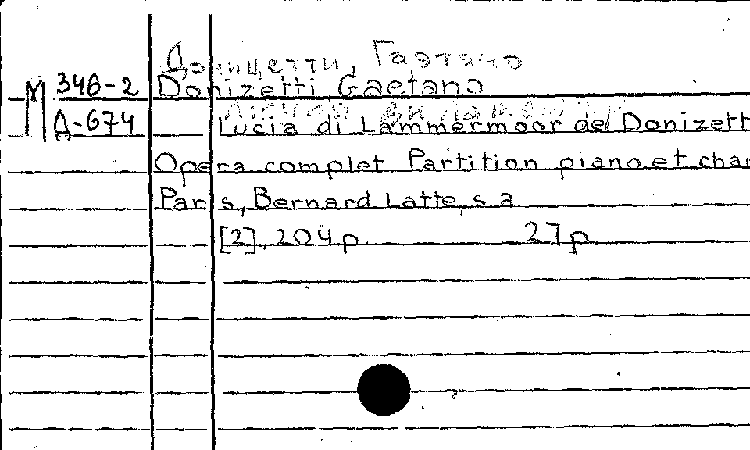 Доницетти, Гаэтано
М 346-2 Donizetti Gaetano
Д-674 Lucia di Lammermoor de Donizett
Opera complet Partition piano et cha
Paris, Bernard Latte, s a
[2], 204 p. 27 p